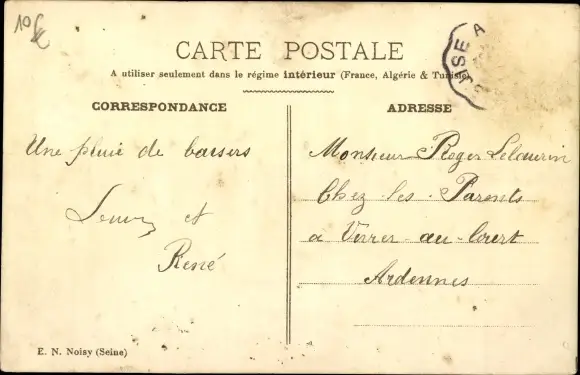 10€
CARTE POSTALE
A utiliser seulement dans le régime intérieur (France, Algérie & Tunisie)
CORRESPONDANCE
Une pluie de baisers
et
René
E. N. Noisy (Seine)
ADRESSE
Monsieur Roger Lelaurin
Chez les Parents
a Vivier-au-Court
Ardennes
OISE A